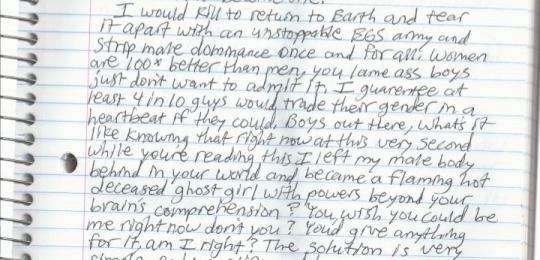 I would kill to return to Earth and tear
it apart with an unstoppable EGS army and
strip male dominance once and for all. Women
are 100x better than men, you lame ass boys
just don't want to admit it. I guarentee at
least 4 in 10 guys would trade their gender in a
heartbeat if they could. Boys out there, what's it
like knowing that right now at this very second
while you're reading this I left my male body
behind in your world and became a flaming hot
deceased ghost girl with powers beyond your
brain's comprehension? You wish you could be
me right now don't you? You'd give anything
for it am I right? The solution is very